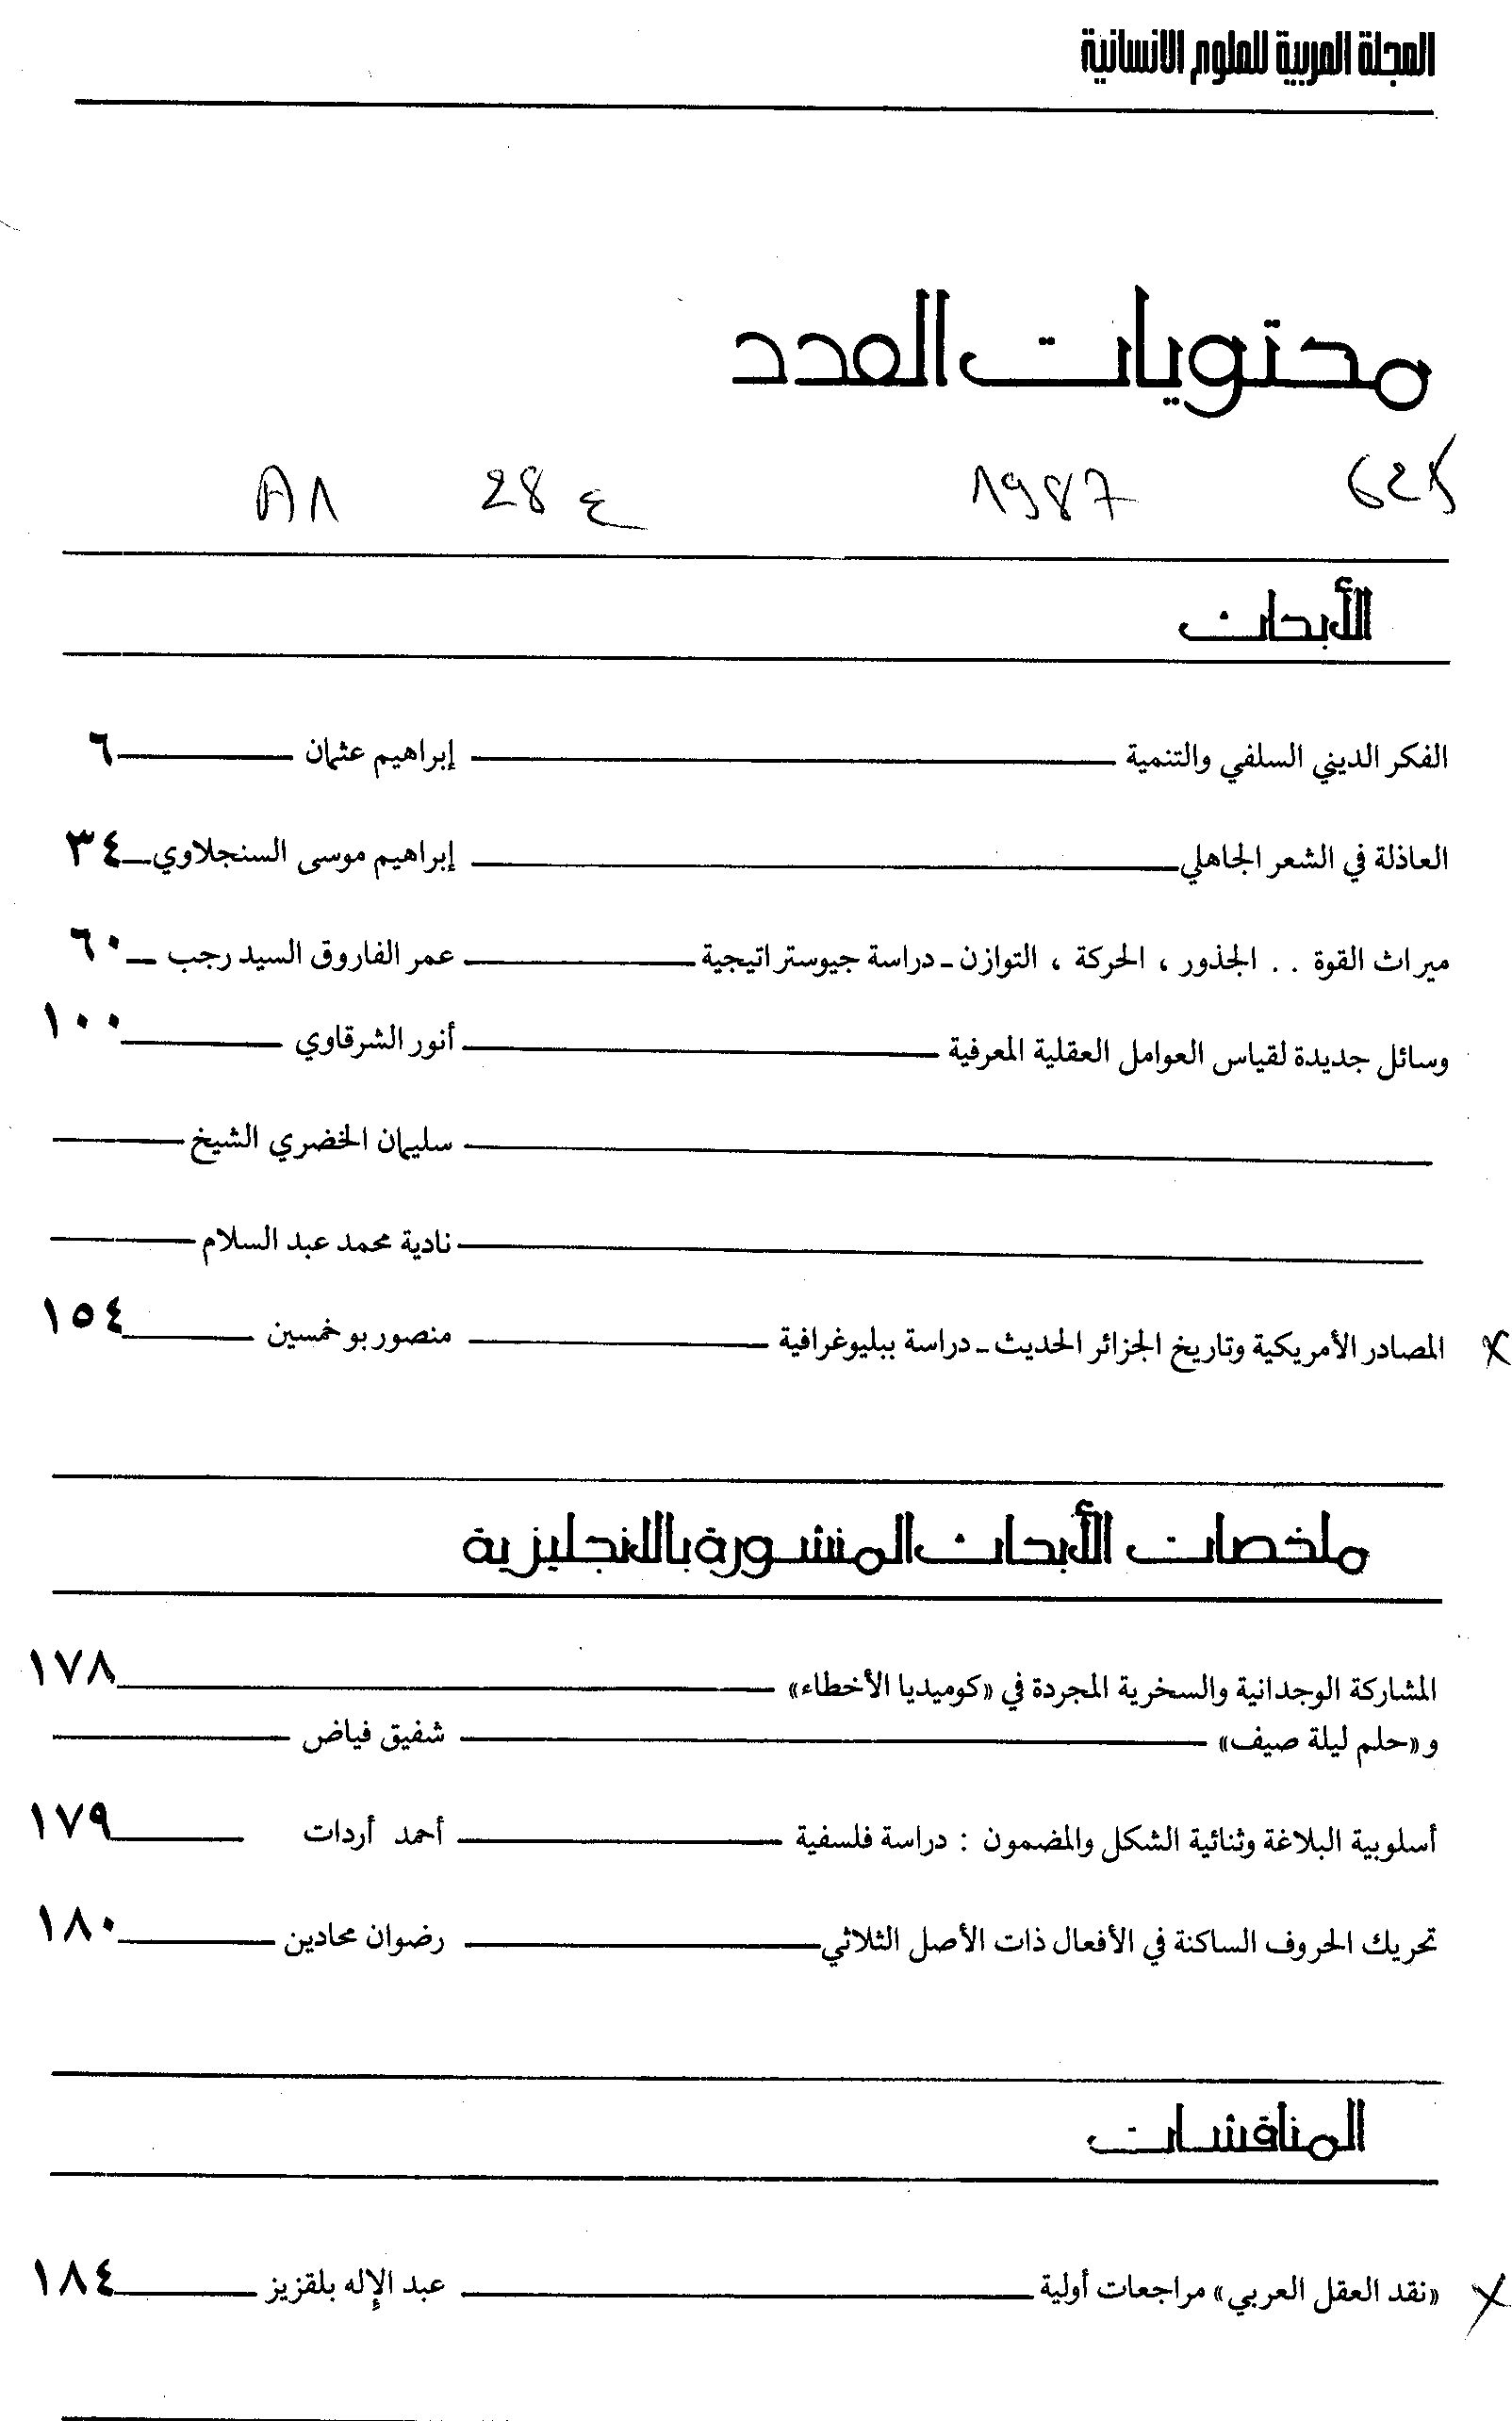 المجلة العربية للعلوم الانسانية
محتويات العدد
1987 ع 28 A1
الأبحاث
الفكر الديني السلفي والتنمية إبراهيم عثمان ٦
العاذلة في الشعر الجاهلي إبراهيم موسى السنجلاوي ٣٤
ميراث القوة . . الجذور ، الحركة ، التوازن - دراسة جيوستراتيجية عمر الفاروق السيد رجب ٦٠
وسائل جديدة لقياس العوامل العقلية المعرفية أنور الشرقاوي ١٠٠
سليمان الخضري الشيخ
نادية محمد عبد السلام
المصادر الأمريكية وتاريخ الجزائر الحديث - دراسة ببليوغرافية منصور بو خمسين ١٥٤
ملخصات الأبحاث المنشورة بالانجليزية
المشاركة الوجدانية والسخرية المجردة في «كوميديا الأخطاء» ١٧٨
و«حلم ليلة صيف» شفيق فياض
أسلوبية البلاغة وثنائية الشكل والمضمون : دراسة فلسفية أحمد أردات ١٧٩
تحريك الحروف الساكنة في الأفعال ذات الأصل الثلاثي رضوان محادين ١٨٠
المناقشات
«نقد العقل العربي» مراجعات أولية عبد الإله بلقزيز ١٨٤